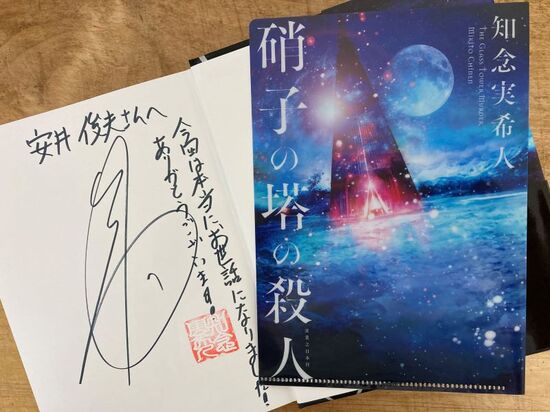 安井俊夫さんへ
今回は本当にお世話になりました!
ありがとうございます!
知念
知念実希人
THE GLASS TOWER MURDER
MIKITO CHINEN
硝子の塔の殺人
実業之日本社